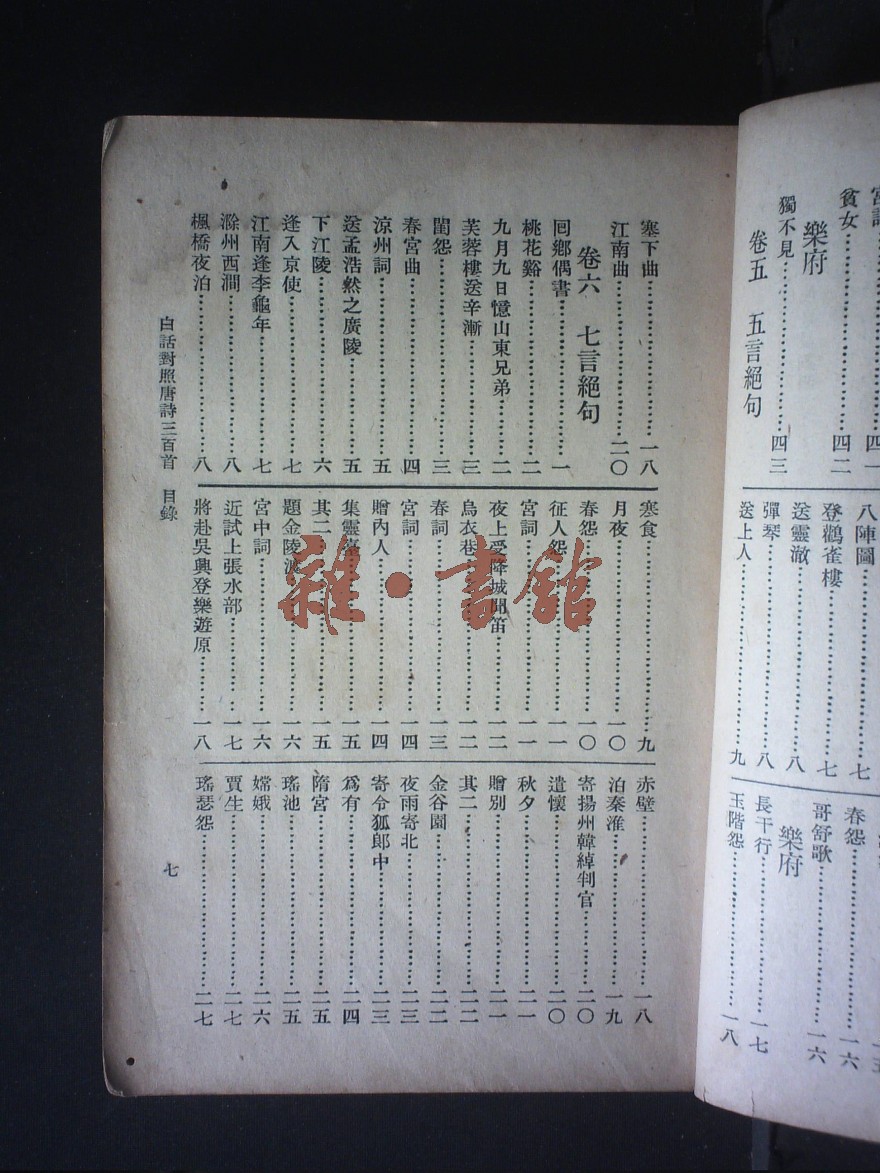 貧女……四二
樂府
獨不見……四三
卷五 五言絕句
八陣圖……七
登鸛雀樓……七
送靈澈……八
彈琴……八
送上人……九
春怨……一六
哥舒歌……一六
樂府
長干行……一七
玉階怨……一八
塞下曲……一八
江南曲……二〇
卷六 七言絕句
回鄉偶書……一
桃花谿……二
九月九日憶山東兄弟……二
芙蓉樓送辛漸……三
閨怨……三
春宮曲……四
涼州詞……五
送孟浩然之廣陵……五
下江陵……六
逢入京使……七
江南逢李龜年……七
滁州西澗……八
楓橋夜泊……八
寒食……九
月夜……一〇
春怨……一〇
征人怨……一一
宮詞……一一
夜上受降城聞笛……一二
烏衣巷……一二
春詞……一三
宮詞……一四
贈內人……一四
集靈臺……一五
其二……一五
題金陵渡……一六
宮中詞……一六
近試上張水部……一七
將赴吳興登樂遊原……一八
赤壁……一八
泊秦淮……一九
寄揚州韓綽判官……二〇
遣懷……二〇
秋夕……二一
贈別……二一
其二……二二
金谷園……二二
夜雨寄北……二三
寄令狐郎中……二三
爲有……二四
隋宮……二五
瑤池……二五
嫦娥……二六
賈生……二七
瑤瑟怨……二七
白話對照唐詩三百首 目錄
七
雜·書館